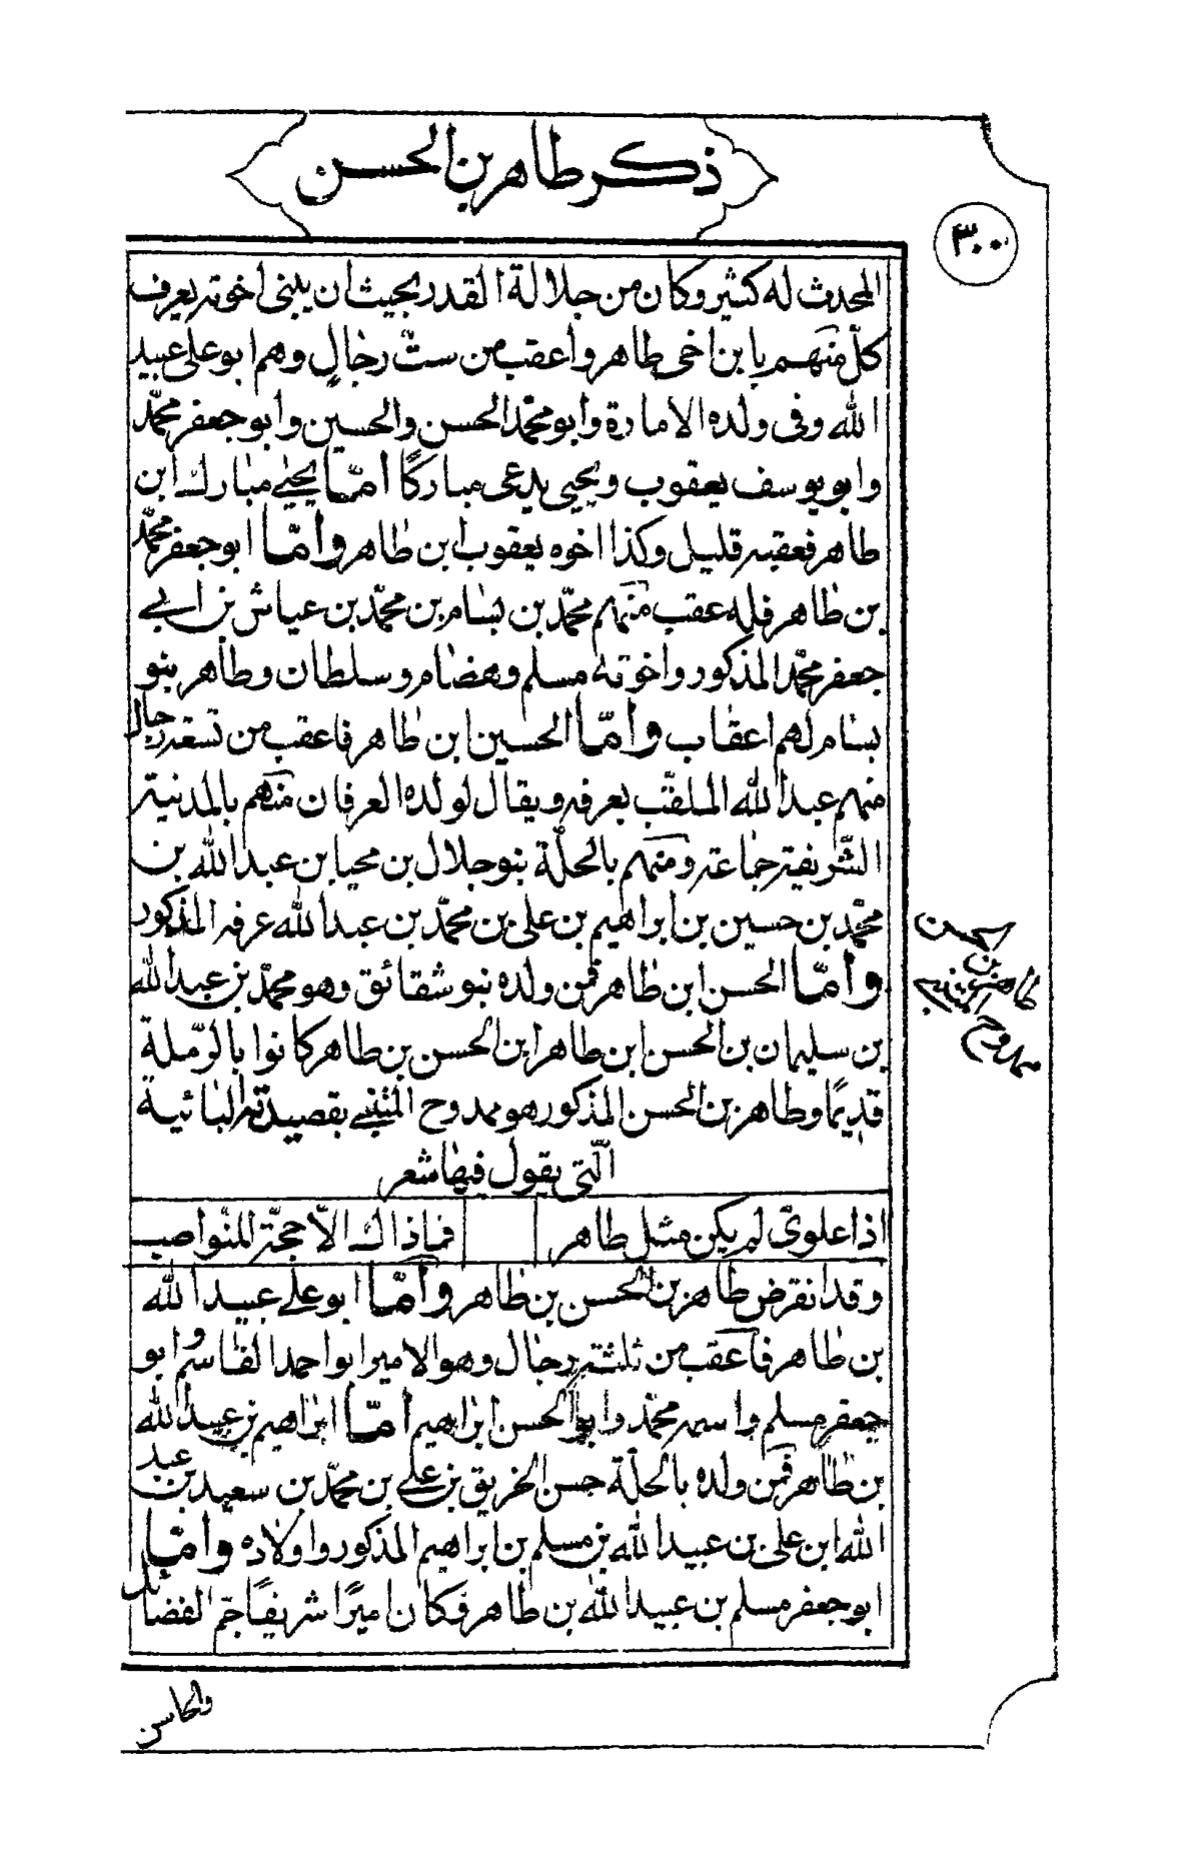 ذكر طاهر بن الحسن
٣٠٠
المحدث له كثير وكان من جلالة القدر بحيث ان بنى اخوته يعرف
كلّ منهم بابن اخى طاهر واعقب من ستّ رجال وهم ابو على عبيد
الله وفى ولده الامارة وابو محمّد الحسن والحسين وابو جعفر محمّد
وابو يوسف يعقوب ويحيى يدعى مباركًا امّا يحيى مبارك ابن
طاهر فعقبه قليل وكذا اخوه يعقوب ابن طاهر وامّا ابو جعفر محمّد
بن طاهر فله عقب منهم محمّد بن بسام بن محمّد بن عياش بن ابى
جعفر محمّد المذكور واخوته مسلم وهضام وسلطان وطاهر بنو
بسام لهم اعقاب وامّا الحسين ابن طاهر فاعقب من تسعة رجال
منهم عبد الله الملقّب بعرفه ويقال لولده العرفان منهم بالمدنية
الشّريفة جماعة ومنهم بالحلّة بنو جلال بن محيا بن عبد الله بن
محمّد بن حسين بن ابراهيم بن على بن محمّد بن عبد الله عرفه المذكور
وامّا الحسن ابن طاهر فمن ولده بنو شقائق وهو محمّد بن عبد الله
بن سليمان بن الحسن ابن طاهر ابن الحسن بن طاهر كانوا بالرّملة
قديمًا وطاهر بن الحسن المذكور هو ممدوح المتنبى بقصيدته البائية
الّتى يقول فيها شعر
اذا علوىّ لم يكن مثل طاهر فماذاك الاّ حجّة للنّواصب
وقد انقرض طاهر بن الحسن بن طاهر وامّا ابو على عبيد الله
بن طاهر فاعقب من ثلثة رجال وهو الامير ابو احمد القاسم وابو
جعفر مسلم واسمه محمّد وابو الحسن ابراهيم امّا ابراهيم بن عبيد الله
بن طاهر فمن ولده بالحلّة حسن الخريق بن على بن محمّد بن سعيد بن عبد
الله ابن على بن عبيد الله بن مسلم بن ابراهيم المذكور واولاده وامّا
ابو جعفر مسلم بن عبيد الله بن طاهر فكان اميرًا شريفًا جمّ الفضائل
طاهر بن الحسن
ممدوح
والمحاسن